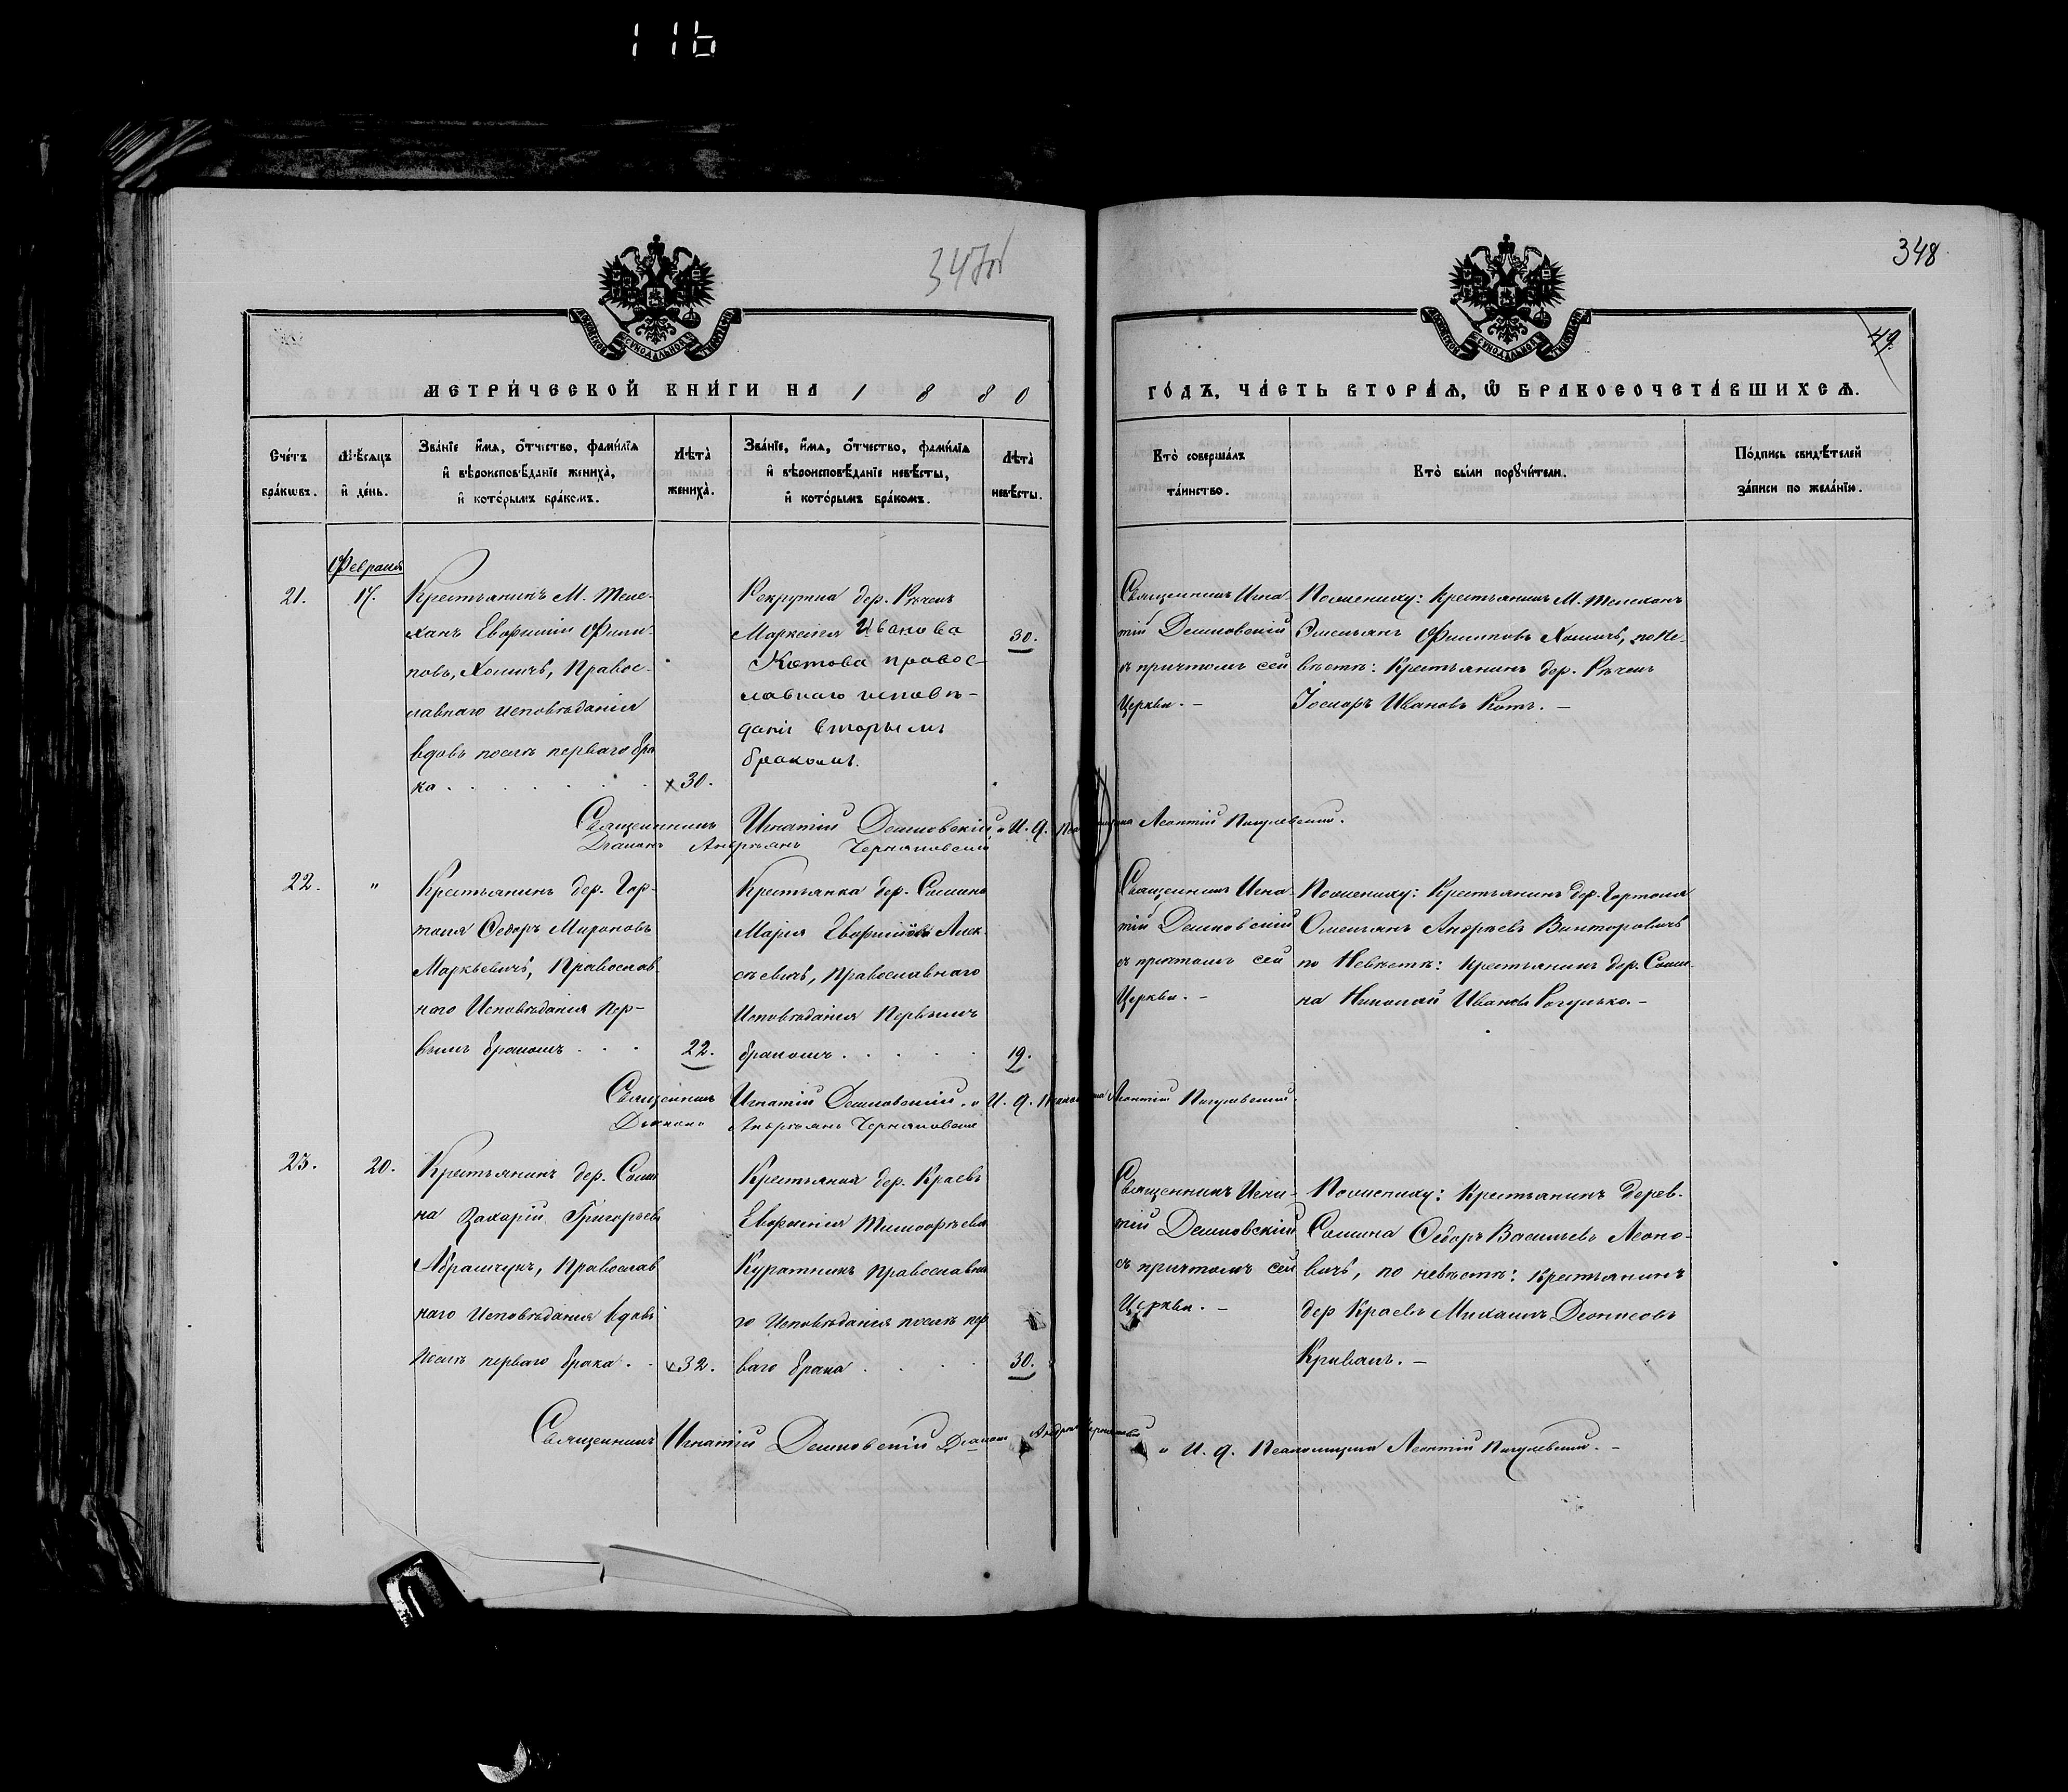 116
348
49
МЕТРИ́ЧЕСКОЙ КНИ́ГИ НА 1880
ГО́ДЪ, ЧА́СТЬ ВТОРА́Я, Ѡ҆ БРАКОСОЧЕТА́ВШИХСЯ.
Сче́тъ бра́кѡвъ.
Мѣ́сяцъ и҆ де́нь.
Зва́нїе и҆́мя, ѻ҆́тчество, фами́лїя
и҆ вѣроисповѣ́данїе жениха̀,
и҆ кото́рымъ бра́комъ.
Лѣ́та жениха̀.
Зва́нїе, и҆́мя, ѻ҆́тчество, фами́лїя
и҆ вѣроисповѣ́данїе невѣ́сты,
и҆ кото́рымъ бра́комъ.
Лѣ́та невѣ́сты.
Кто̀ соверша́лъ та́инство.
Кто̀ бы́ли порꙋчи́тели.
По́дпись свидѣ́телей
за́писи по жела́нїю.
Февраля
21.
17.
Крестьянинъ М. Теле-
ханъ Евфимій Фили-
повъ, Хомичъ, Правос-
лавнаго исповѣданія
вдовъ послѣ перваго бра
ка
30.
Рекрутка дер. Рѣчекъ
Иванова
Котова правос-
лавнаго исповѣ-
данія вторымъ
бракомъ.
30.
Священникъ Игна-
тій Дешковскій
съ причтомъ сей
Церкви. –
По жениху: Крестьянинъ М. Телеханъ
Емельянъ Филиповъ Хомичъ, по Не-
вѣстѣ: Крестьянинъ дер. Рѣчекъ
Ивановъ Котъ. –
Священникъ Игнатій Дешковскій, и И. д. Леонтій Пигулевскій.
Діаконъ Черняковскій
22.
"
Крестьянинъ дер. Гор-
таля Ѳедоръ Мироновъ
Маркевичъ, Православ-
наго Исповѣданія Пер-
вымъ бракомъ
22.
Крестьянка дер. Сомина
Марія Евфимова Алек-
сѣевичъ, Православнаго
Исповѣданія Первымъ
бракомъ
19.
Священникъ Игна-
тій Дешковскій
съ причтомъ сей
Церкви. –
По жениху: Крестьянинъ дер. Гортоля
Омельянъ Андреевъ Викторовичъ
по Невѣстѣ: Крестьянинъ дер. Соми-
на Николай Ивановъ Рогулько. –
Священникъ Игнатій Дешковскій, и И. д. Леонтій Пигулевскій.
Діаконъ Черняковскій
23.
20.
Крестьянинъ дер. Соми
на Захарій Григорьевъ
Абрамчукъ, Православ
наго Исповѣданія вдовъ
послѣ перваго брака
32.
Крестьянка дер. Краевъ
Евфимія Тимофѣева
Куратникъ православна
го Исповѣданія послѣ пер
ваго брака
30.
Священникъ Игна-
тій Дешковскій
съ причтомъ сей
Церкви. –
По жениху: Крестьянинъ дерев.
Сомина Ѳедоръ Васильевъ Леоно-
вичъ, по невѣстѣ: Крестьянинъ
дер Краевъ Михаилъ Деонисовъ
Кривалъ. –
Священникъ Игнатій Дешковскій Діаконъ
и И. д. Псаломщика Леонтій Пигулевскій. –